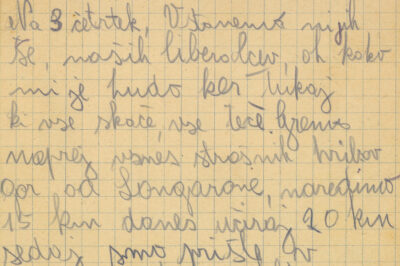 Na 3 četrtek, Vstanemo ni jih
še, naših liberodcev, oh kako
mi je hudo ker tukaj
ki vse skače, vse teče. Gremo
naprej vsnes strašnih hribov
gor od Longarone, naredimo
15 km danes včeraj 20 km
sedaj smo prišle v